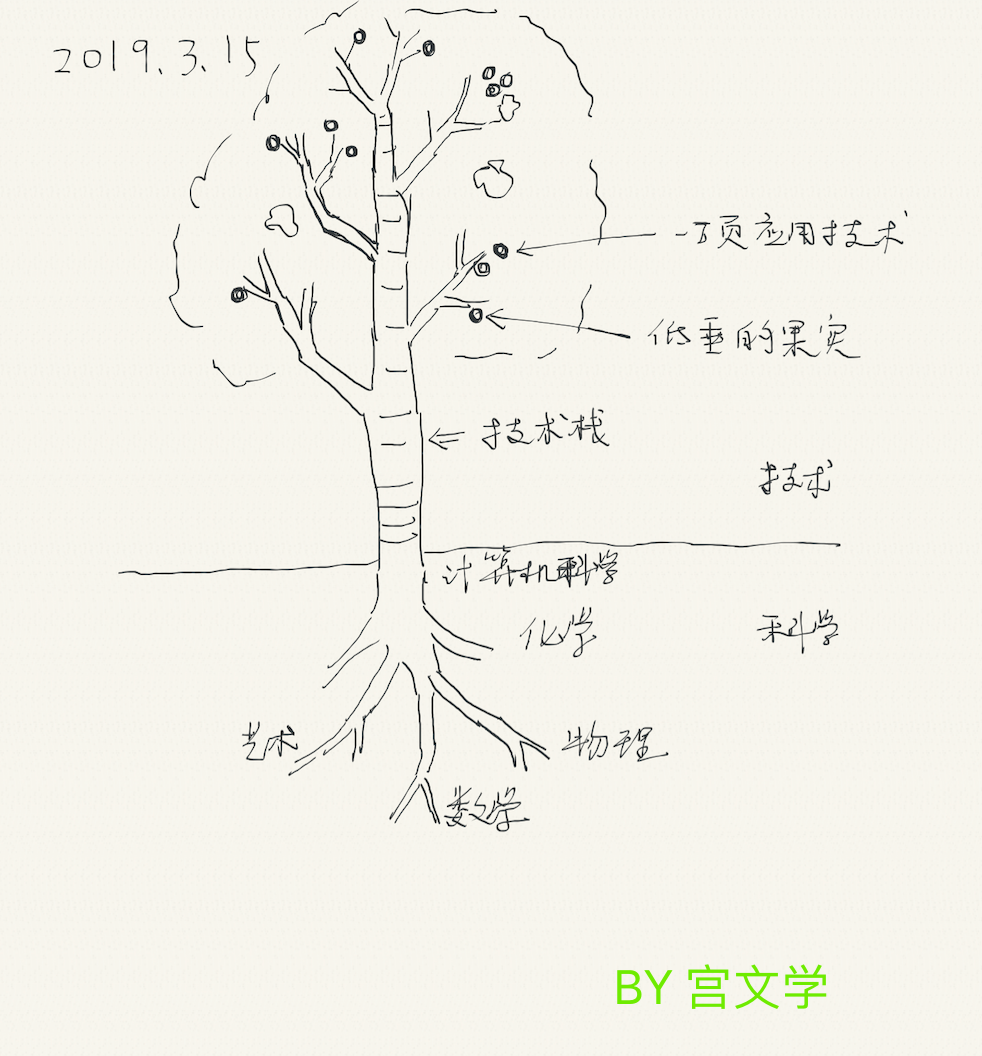 2019.3.15
一项应用技术
低垂的果实
技术栈
技术
计算机科学
化学
科学
艺术
物理
数学
BY 宫文学